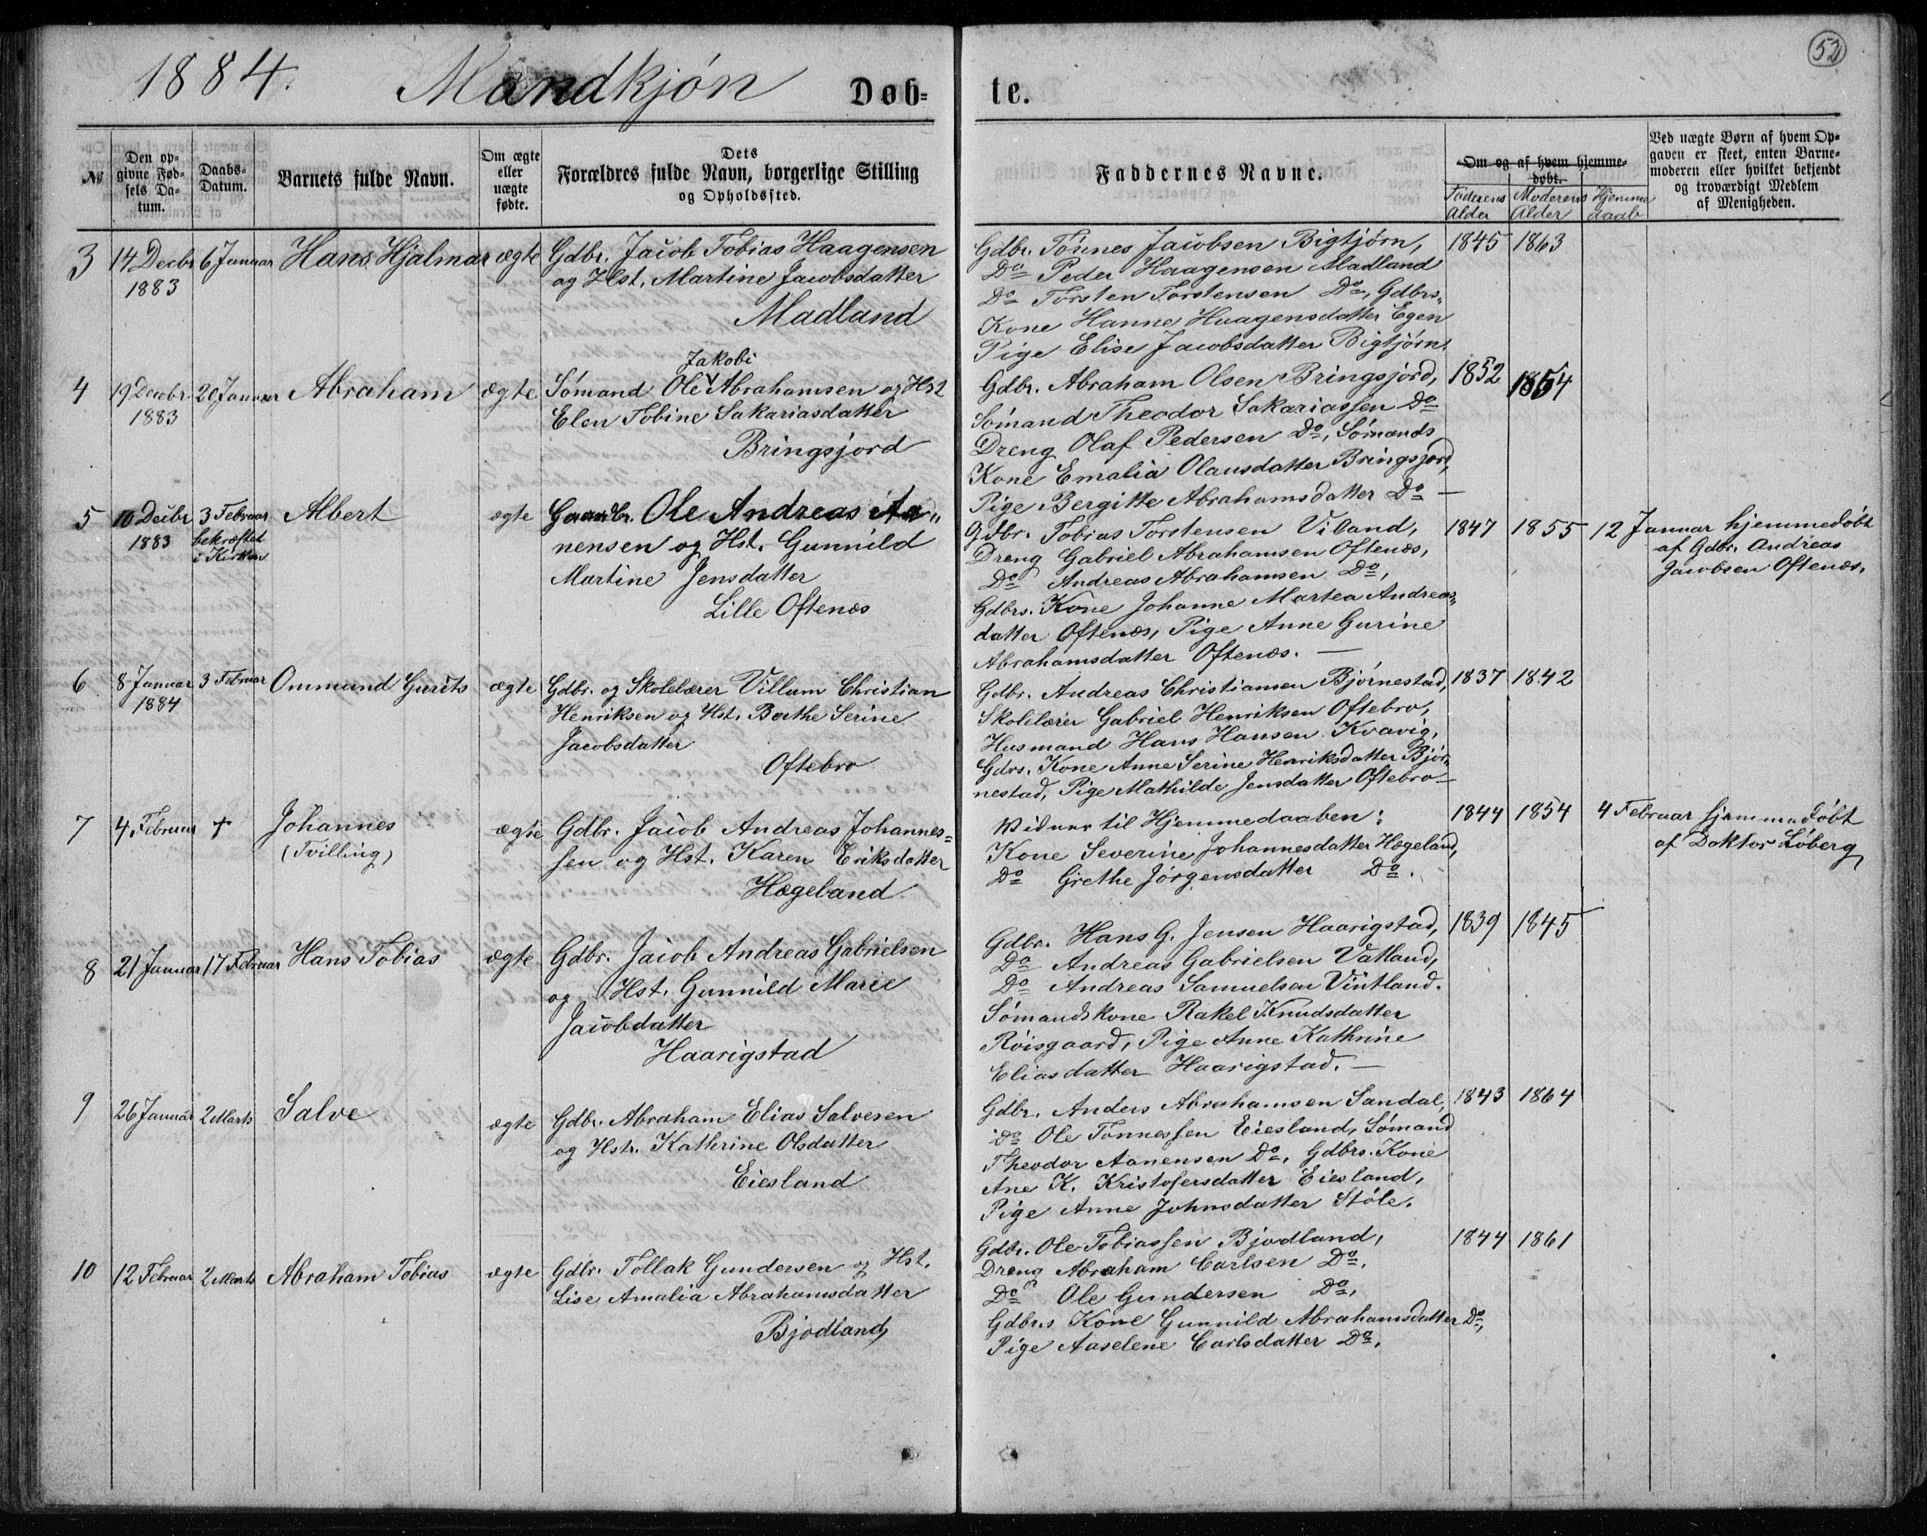 52
1884. Mandkjøn Døb=te.
№
Den op-
givne Fød-
sels Da-
tum.
Daabs-
Datum.
Barnets fulde Navn.
Om ægte
eller
uægte
fødte.
Dets
Forældres fulde Navn, borgerlige Stilling
og Opholdssted.
Faddernes Navne.
Om og af hvem hjemme-
døbt.
Faderens
Alder
Moderens
Alder
Hjemme
daab
Ved uægte Børn af hvem Op-
gaven er skeet, enten Barne-
moderen eller hvilket bekjendt
og troværdigt Medlem
af Menigheden.
3 14 Decbr 6 Januar Hans Hjalmar ægte
1883
Gdbr. Jacob Tobias Haagensen
og Hst. Martine Jacobsdatter
Madland
Gdbr. Tønnes Jacobsen Bigtjørn,
Do Peder Haagensen Madland
Do Torsten Torstensen Do, Gdbrs.
Kone Hanne Haagensdatter Egen
Pige Elise Jacobsdatter Bigtjørn.
1845 1863
4 19 Decbr. 20 Januar Abraham ægte
1883
Jakobi
Sømand Ole Abrahamsen og Hst
Elen Tobine Sakariasdatter
Bringsjord
Gdbr. Abraham Olsen Bringsjord,
Sømand Theodor Sakariassen Do
Dreng Olaf Pedersen Do, Sømands
Kone Emalia Olausdatter Bringsjord,
Pige Bergitte Abrahamsdatter Do —
1852 1854
5 10 Decbr 3 Februar Albert ægte
1883 bekræftet
i Kirken
Gaardbr. Ole Andreas Aa-
nensen og Hst. Gunnild
Martine Jensdatter
Lille Oftenæs
Gdbr. Tobias Torstensen Viband,
Dreng Gabriel Abrahamsen Oftenæs,
Do Andreas Abrahamsen Do,
Gdbrs. Kone Johanne Martea Andreas-
datter Oftenæs, Pige Anne Gurine
Abrahamsdatter Oftenæs. —
1847 1855 12 Januar hjemmedøbt
af Gdbr. Andreas
Jacobsen Oftenæs,
6 8 Januar 3 Februar Ommund Gurits ægte
1884
Gdbr. og Skolelærer Villum Christian
Henriksen og Hst. Berthe Serine
Jacobsdatter
Oftebro
Gdbr. Andreas Christiansen Bjørnestad,
Skolelærer Gabriel Henriksen Oftebro,
Husmand Hans Hansen Kvavig,
Gdrs. Kone Anne Serine Henriksdatter Bjør-
nestad, Pige Mathilde Jensdatter Oftebro —
1837 1842
7 4. Februar + Johannes ægte
(Tvilling)
Gdbr. Jacob Andreas Johannes-
sen og Hst. Karen Eriksdatter
Hægeband
Vidner til Hjemmedaaben:
Kone Severine Johannesdatter Hægeland,
Do Grethe Jørgensdatter Do.
1844 1854 4 Februar hjemmedøbt
af Doktor Løberg
8 21 Januar 17 Februar Hans Tobias ægte
Gdbr. Jacob Andreas Gabrielsen
og Hst. Gunnild Marie
Jacobdatter
Haarigstad
Gdbr. Hans G. Jensen Haarigstad,
Do Andreas Gabrielsen Vatland,
Do Andreas Samuelsen Vintland.
Sømandskone Rakel Knudsdatter
Røisgaard, Pige Anne Kathrine
Eliasdatter Haarigstad. —
1839 1845
9 26 Januar 2 Marts Salve ægte
Gdbr. Abraham Elias Salvesen
og Hstr. Kathrine Olsdatter
Eiesland
Gdbr. Anders Abrahamsen Sandal,
Do Ole Tønnessen Eiesland, Sømand
Theodor Aanensen Do, Gdbrs. Kone
Ane K. Kristofersdatter Eiesland,
Pige Anne Johnsdatter Støle.
1843 1864
10 12 Februar 2 Marts Abraham Tobias ægte
Gdbr. Tollak Gundersen og Hst.
Lise Amalia Abrahamsdatter
Bjodland
Gdbr. Ole Tobiassen Bjodland,
Dreng Abraham Carlsen Do.
Do Ole Gundersen Do,
Gdbrs Kone Gunnild Abrahamsdatter Do,
Pige Aaselene Carlsdatter Do.
1844 1861